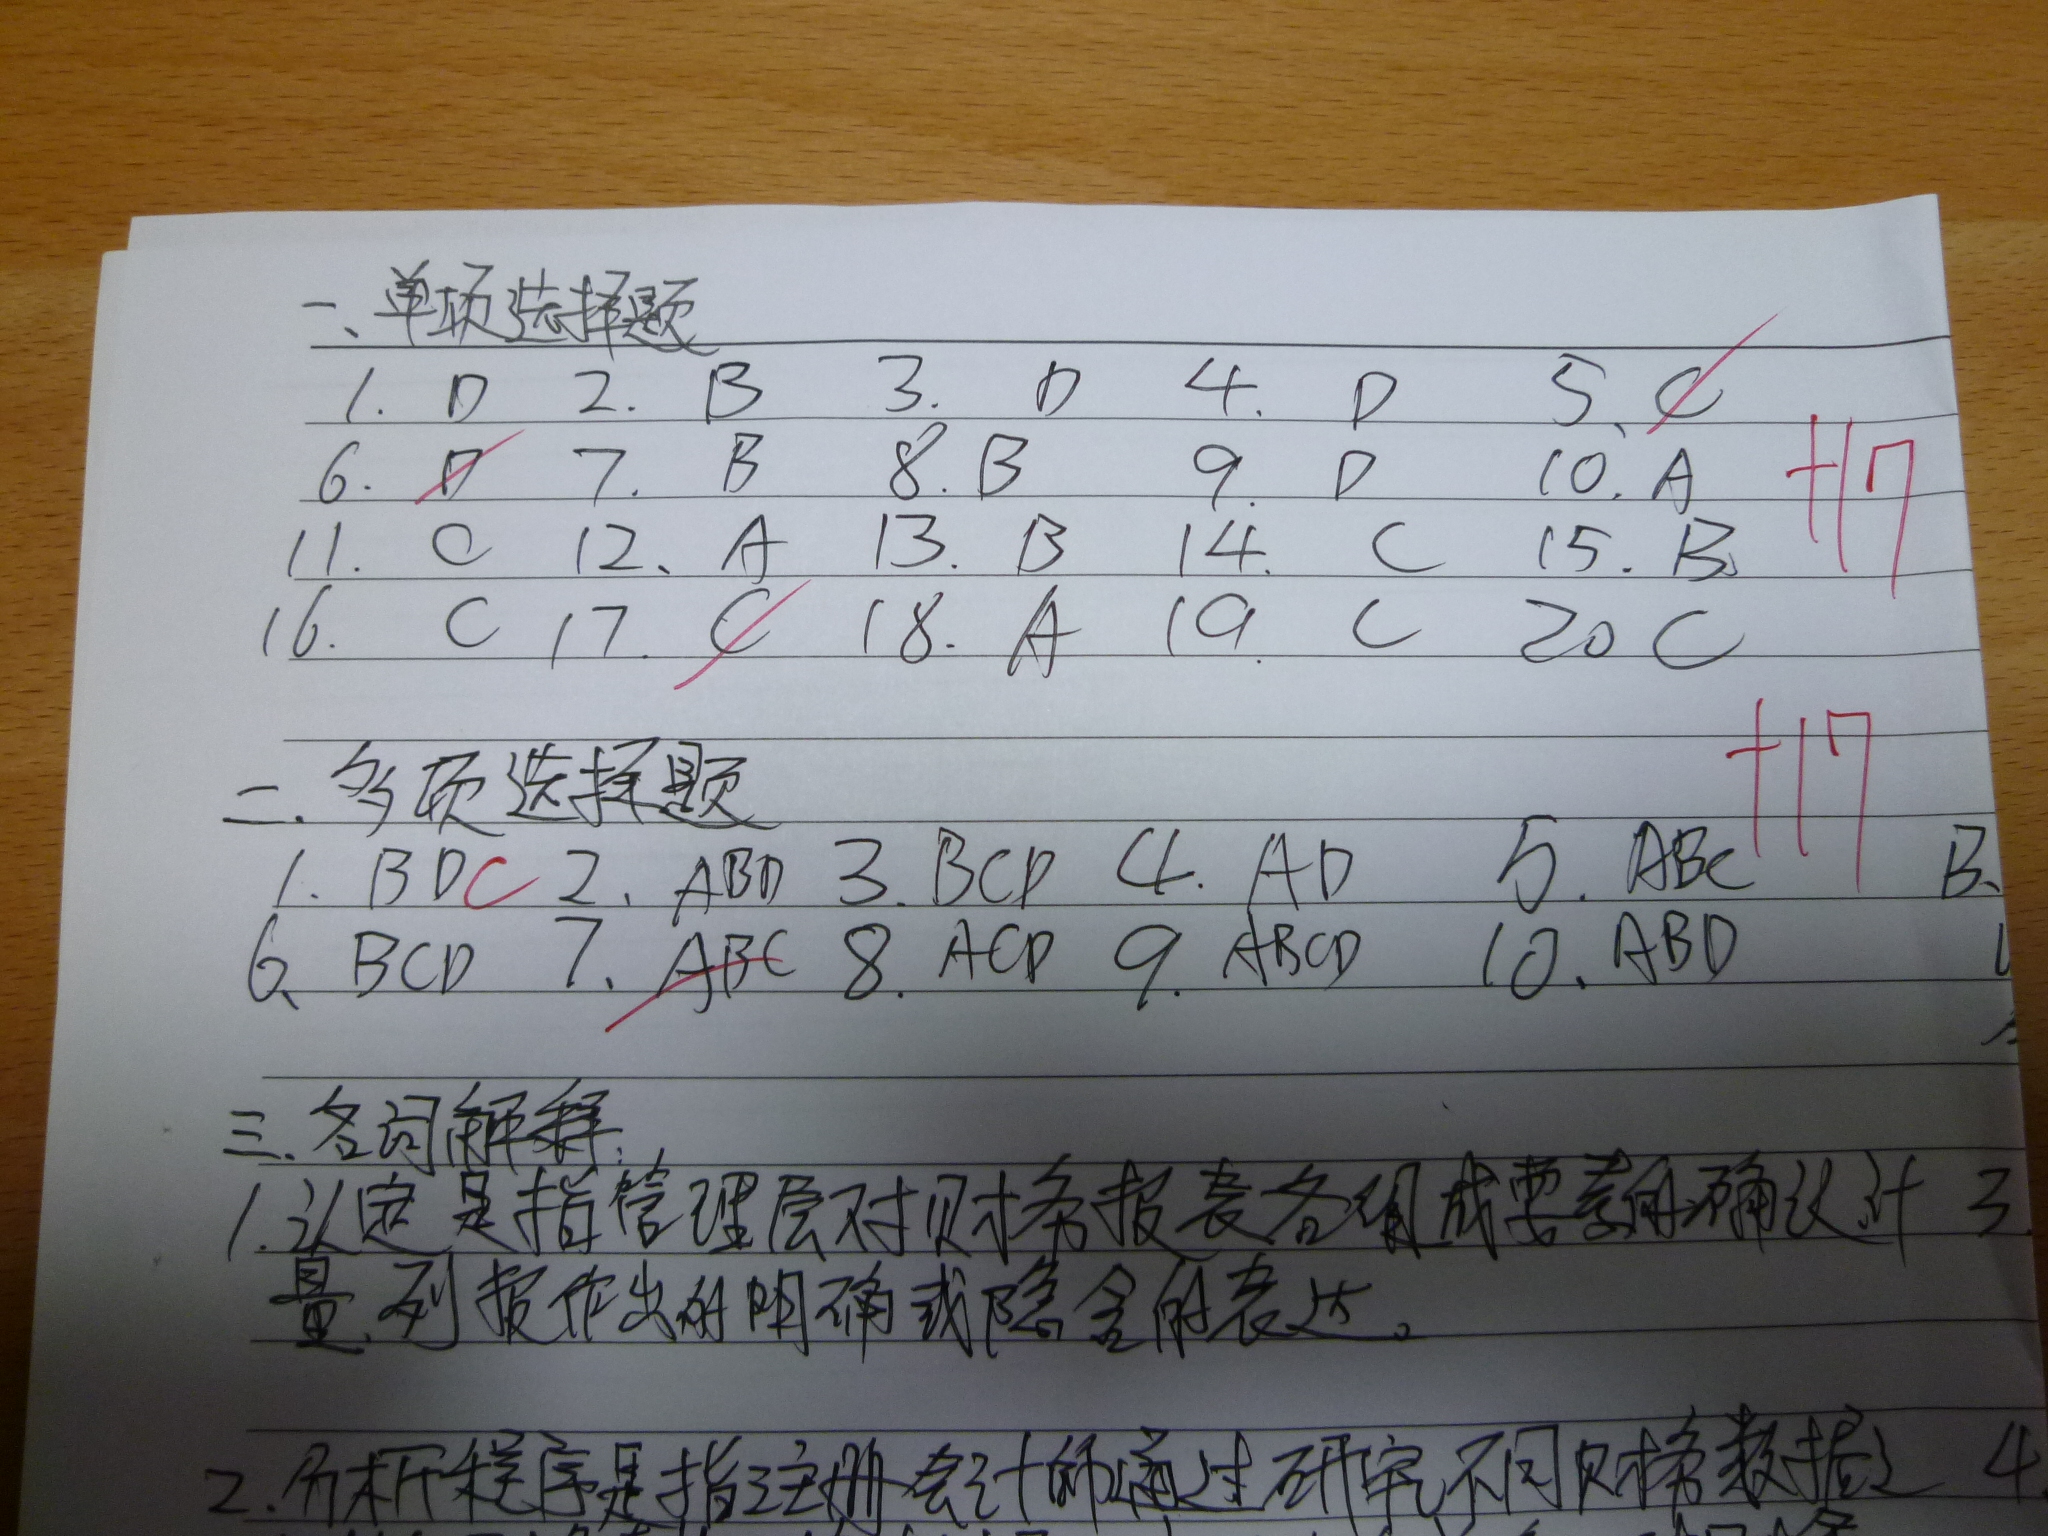 一、单项选择题
1. D 2. B 3. D 4. D 5、C
6. D 7. B 8. B 9. D 10. A +17
11. C 12、A 13. B 14. C 15. B
16. C 17. C 18. A 19. C 20 C
二. 多项选择题 +17
1. BDC 2. ABD 3. BCD 4. AD 5. ABC B、
6、BCD 7. ABC 8. ACD 9. ABCD 10、ABD
三. 名词解释.
1. 认定是指管理层对财务报表各组成要素的确认、计 3.
量、列报作出的明确或隐含的表达。
2. 分析程序是指注册会计师通过研究不同财务数据之 4.